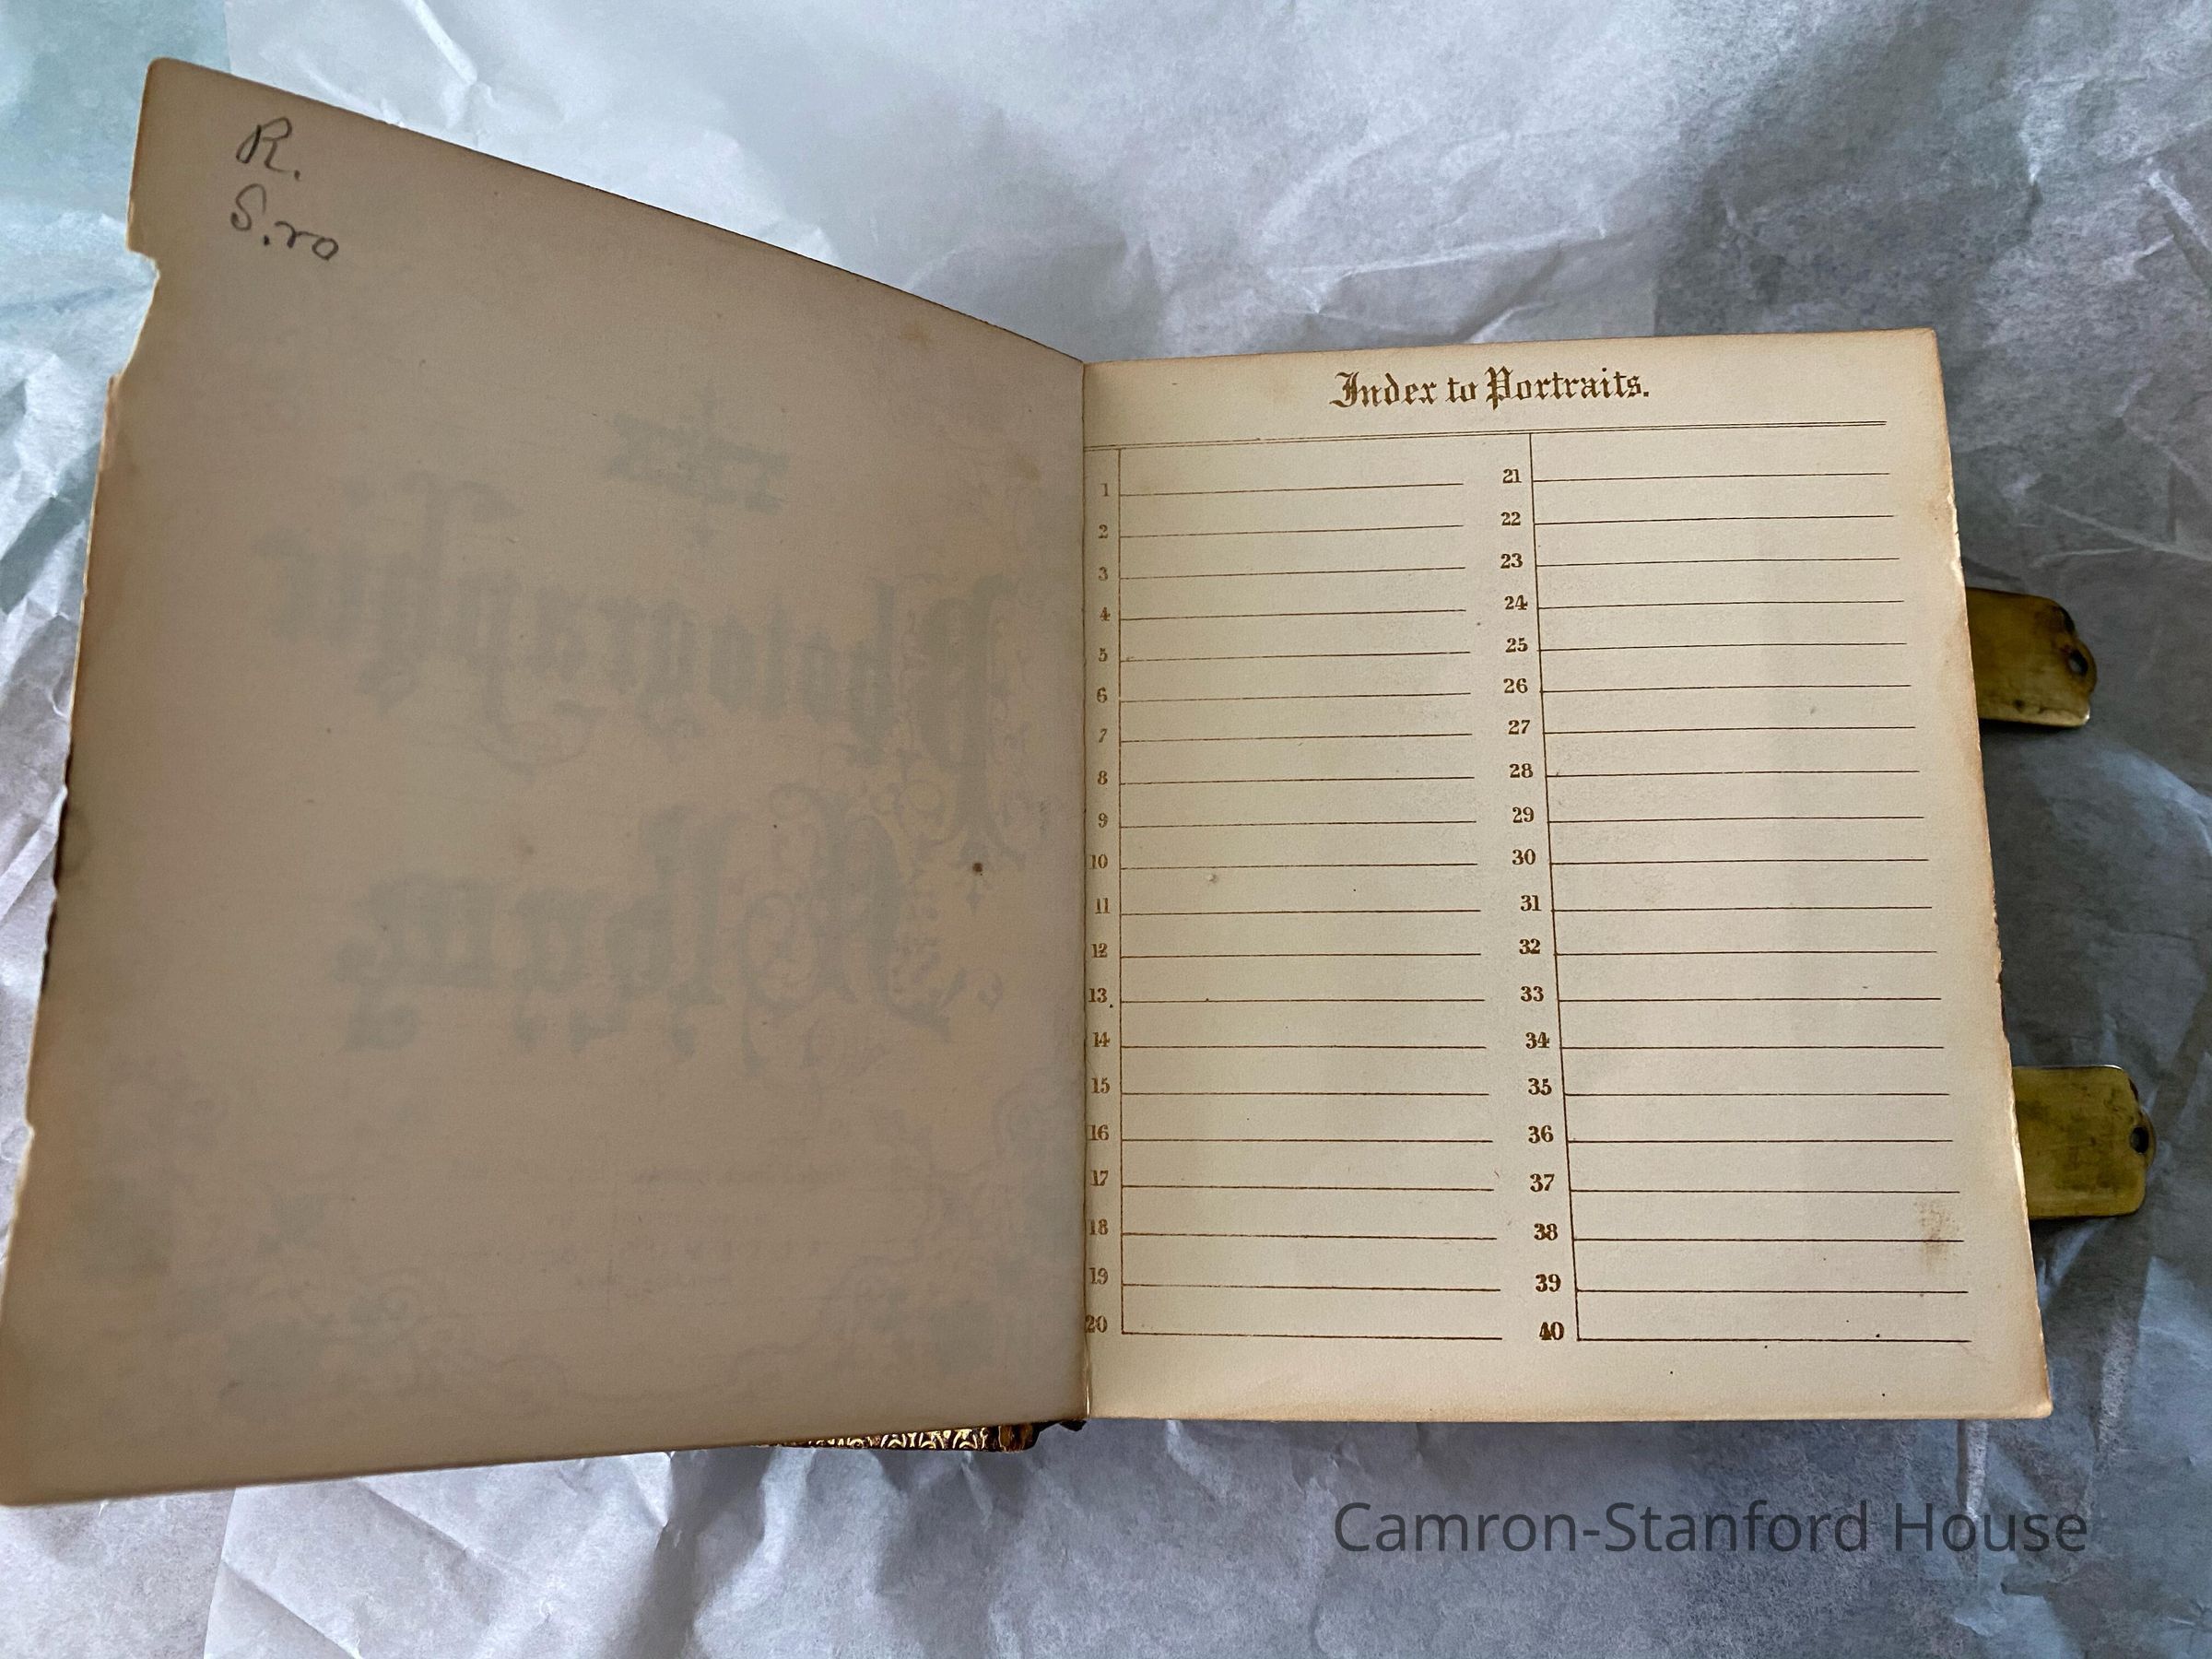 R.
S.ro
Photographic
Album
Index to Portraits.
1
2
3
4
5
6
7
8
9
10
11
12
13
14
15
16
17
18
19
20
21
22
23
24
25
26
27
28
29
30
31
32
33
34
35
36
37
38
39
40
Camron-Stanford House